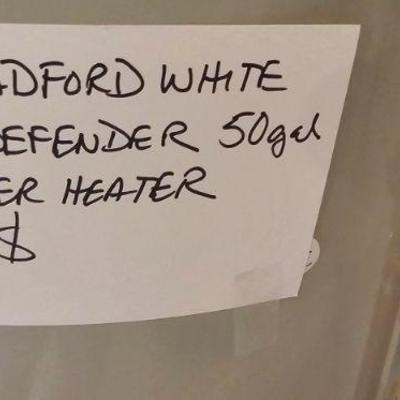 ADFORD WHITE
DEFENDER 50gal
ER HEATER
$